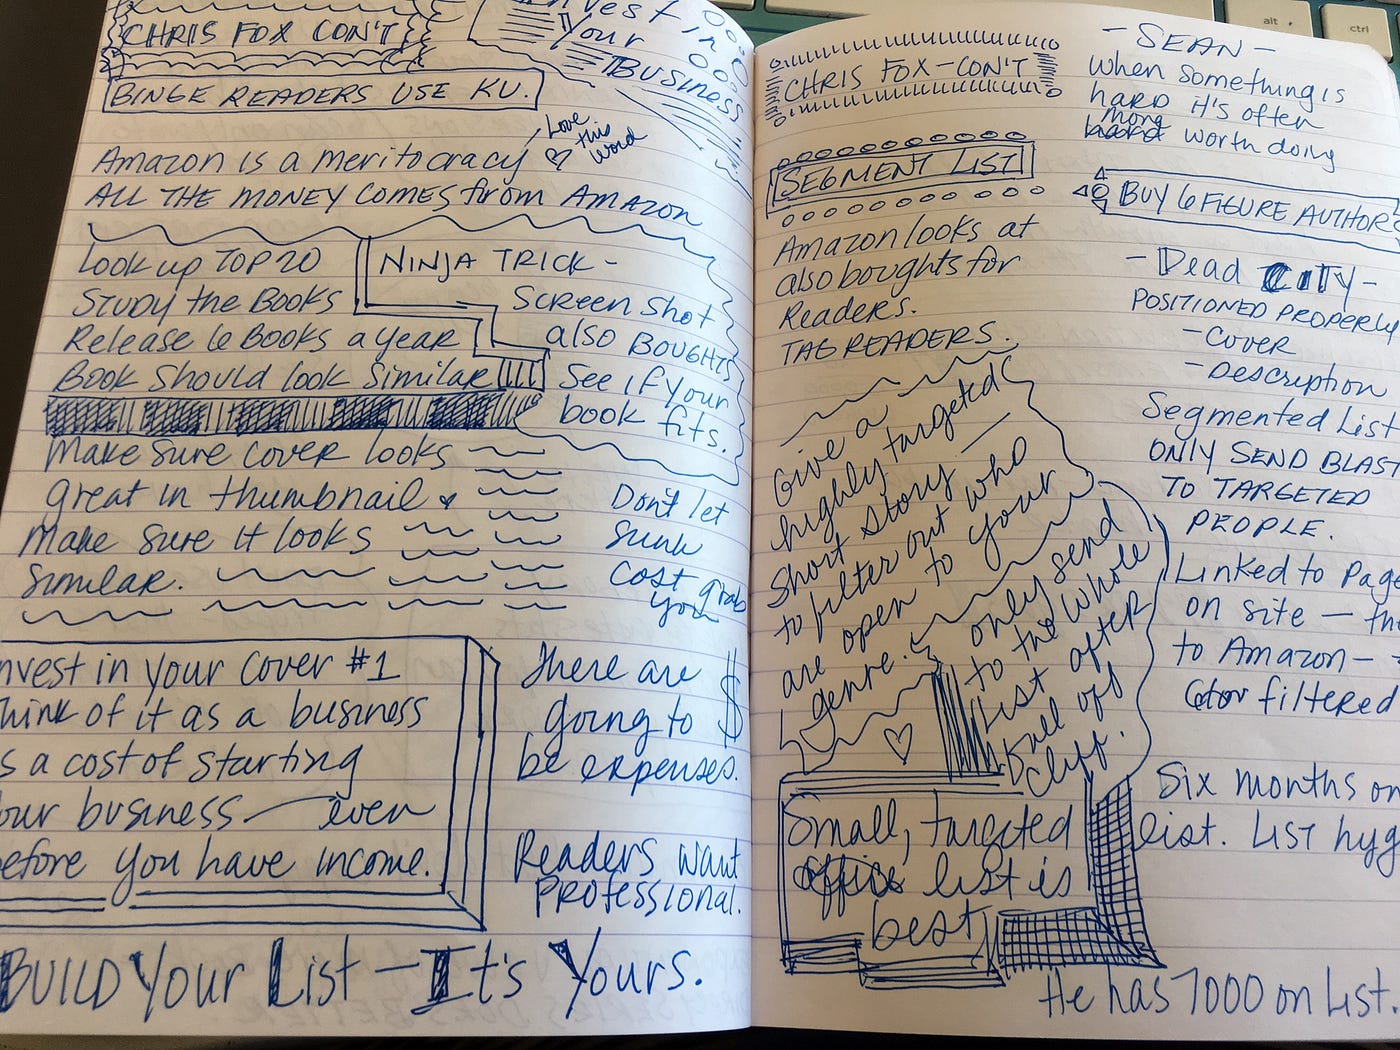 CHRIS FOX CON'T
Invest in
Your
BUSINESS
BINGE READERS USE KU.
Love
this
word
Amazon is a meritocracy
ALL THE MONEY COMES from AMAZON
Look up TOP 20
STUDY the BOOKS
Release 6 BOOKS a year
Book Should look Similar
NINJA TRICK -
SCREEN SHOT
also BOUGHTS
See if your
book fits.
Make sure cover looks
great in thumbnail &
Make sure it looks
similar.
Don't let
sunk
cost grab
you
nvest in your cover #1
hink of it as a business
s a cost of starting
our business - even
efore you have income.
There are
going to
be expenses.
$
Readers want
Professional.
BUILD Your List - It's Yours.
CHRIS FOX - CON'T
SEGMENT LIST
Amazon looks at
also boughts for
Readers.
TAG READERS.
Give a
highly targeted
short story -
to filter out who
are open to your
genre.
only send
to the whole
list after
fall off
cliff.
Small, targeted
list is
best
- SEAN -
when something is
hard it's often
more
worth doing
BUY 6 FIGURE AUTHORS
- Dead City -
POSITIONED PROPERLY
- Cover
- Description
Segmented List
ONLY SEND BLAST
TO TARGETED
PEOPLE.
Linked to Page
on site - the
to Amazon -
filtered
Six months on
list. List hyg
He has 7000 on list.